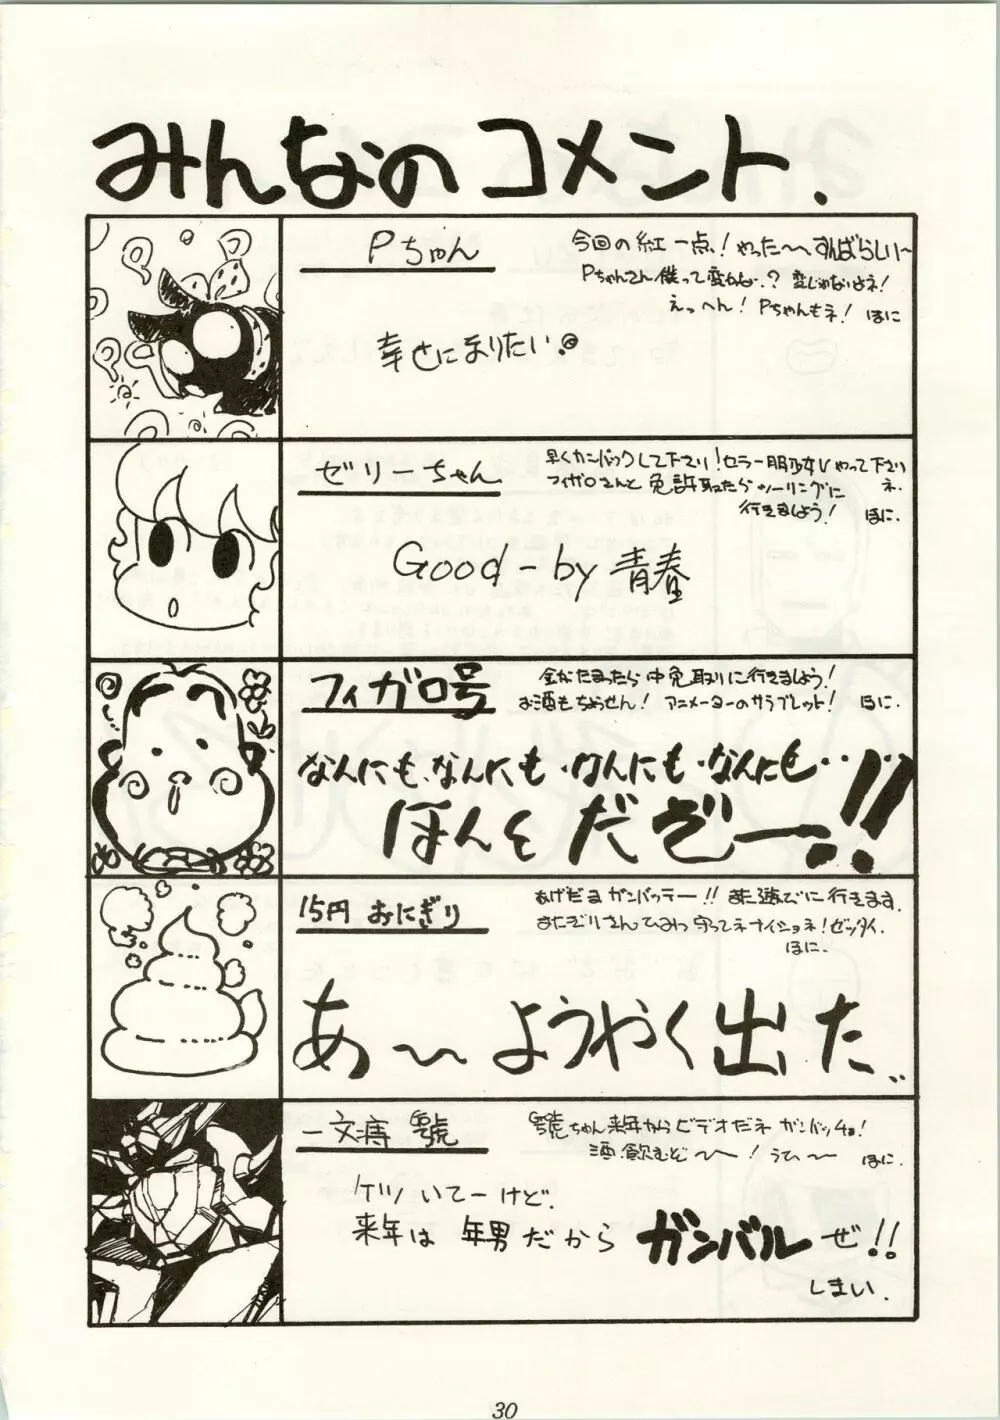 みんなのコメント.
Pちゃん
今回の紅一点！やった〜〜すんばらしい〜
Pちゃんさん僕って変かな？変じゃないよネ！
えっへん！Pちゃんもネ！ ほに
幸せになりたい。
ゼリーちゃん
早くカンバックして下さい！セラー服少女Vやって下さいネ.
フィガロさんと免許取たらツーリングに
行きましょう！ ほに.
Good-by 青春
フィガロ号
金がたまったら中免取りに行きましょう！
お酒もちょうせん！アニメーターのサラブレット！ ほに.
なんにも、なんにも・なんにも・なんにも・・・・!!
ほんとだぞー!!
15円 おにぎり
あげだまガンバッテー!!また遊びに行きます.
おにぎりさんひみつ守ってネナイショネ！ゼッタイ.
ほに.
あ〜〜ようやく出た..
一文薄 號
號ちゃん来年からビデオだネ ガンバッチョ！
酒飲むぞ〜〜！うひ〜〜 ほに.
ケツいてーけど.
来年は 年男だから ガンバルぜ!!
しまい.
30